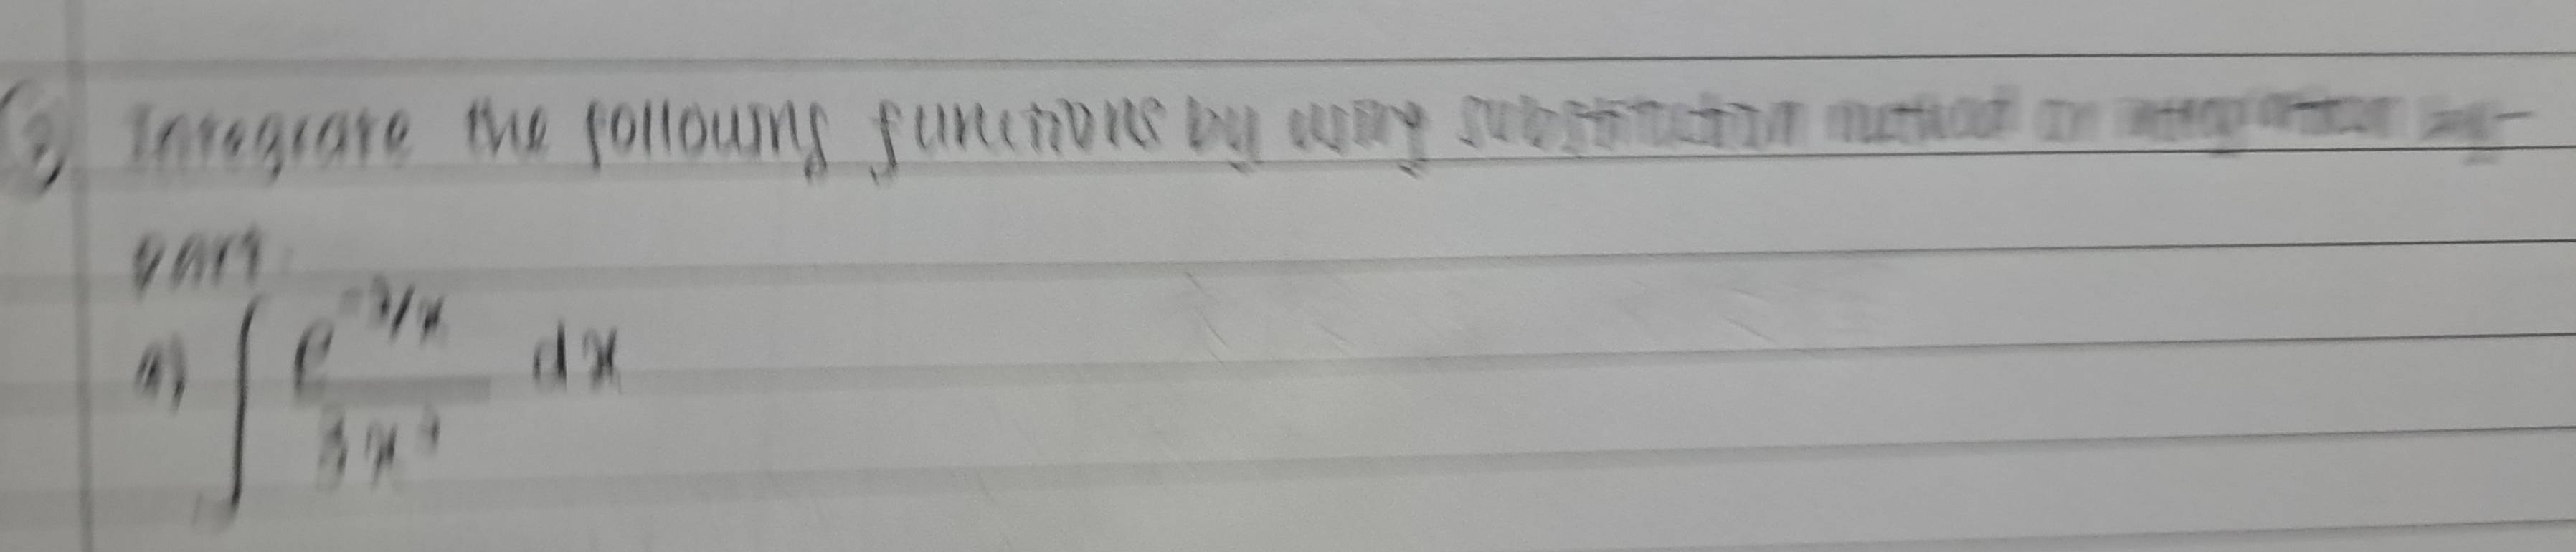 Integrate the following functions by using substitution method or integration by-
part
a) ∫ e^-3/x / 3x² dx